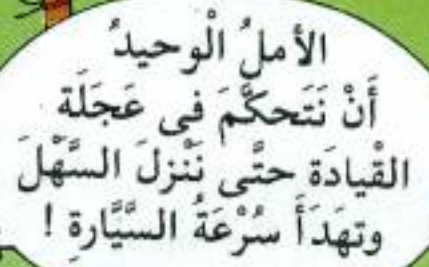 الأملُ الْوحيدُ
أَنْ نَتَحكَّمَ فى عَجَلَة
القْيادَة حتَّى نَنْزلَ السَّهْلَ
وتهَدَأَ سُرْعَةُ السَّيَّارةِ !